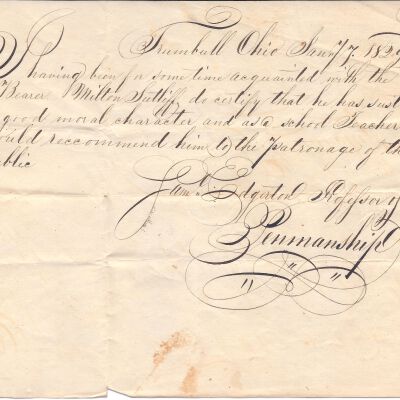 Trumball Ohio Jany 7. 1829
I having been for some time acquainted with the
Bearer Milton Sutliff, do certify that he has sust
good moral character and as a school Teacher
ould reccommend him to the Patronage of th
ublic
Jam^s Edgerton Professor of
Penmanship
" " "